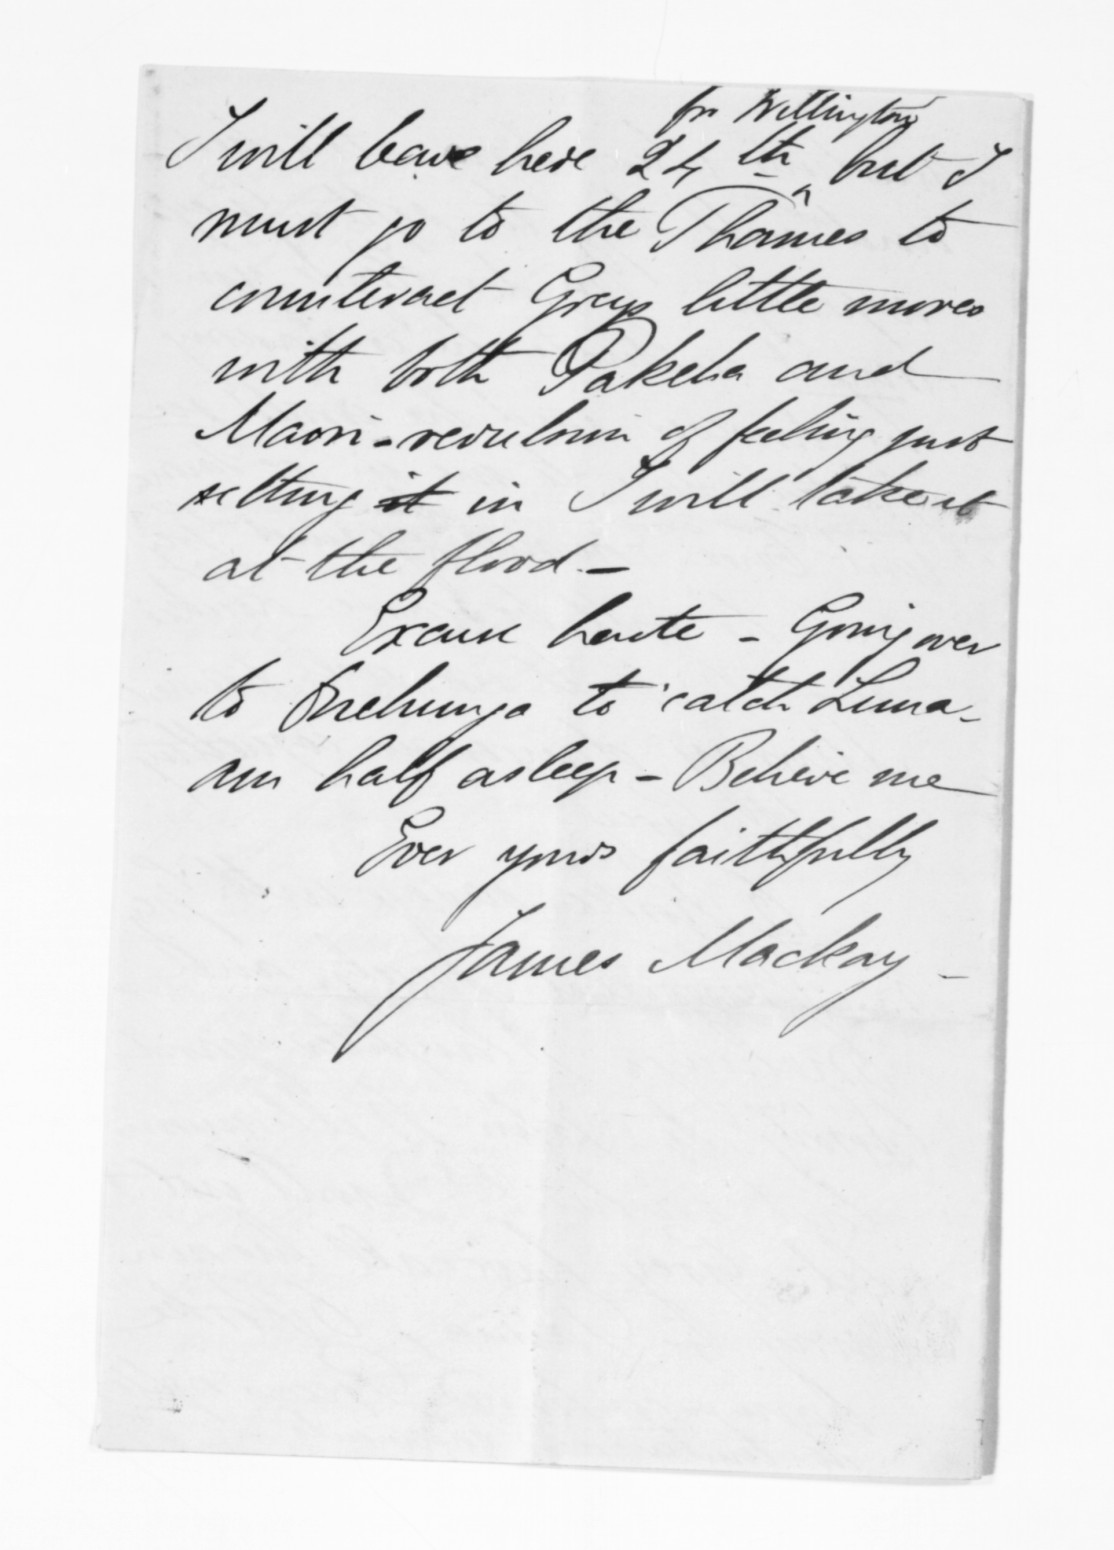 for Wellington
I will leave here 24th ^ but I
must go to the Thames to
counteract Greys little moves
with both Pakeha and
Maori - revulsion of feeling just
setting it in I will take it
at the flood. -
Excuse haste - Going over
to Onehunga to catch Luna -
am half asleep - Believe me
Ever yours faithfully
James Mackay -